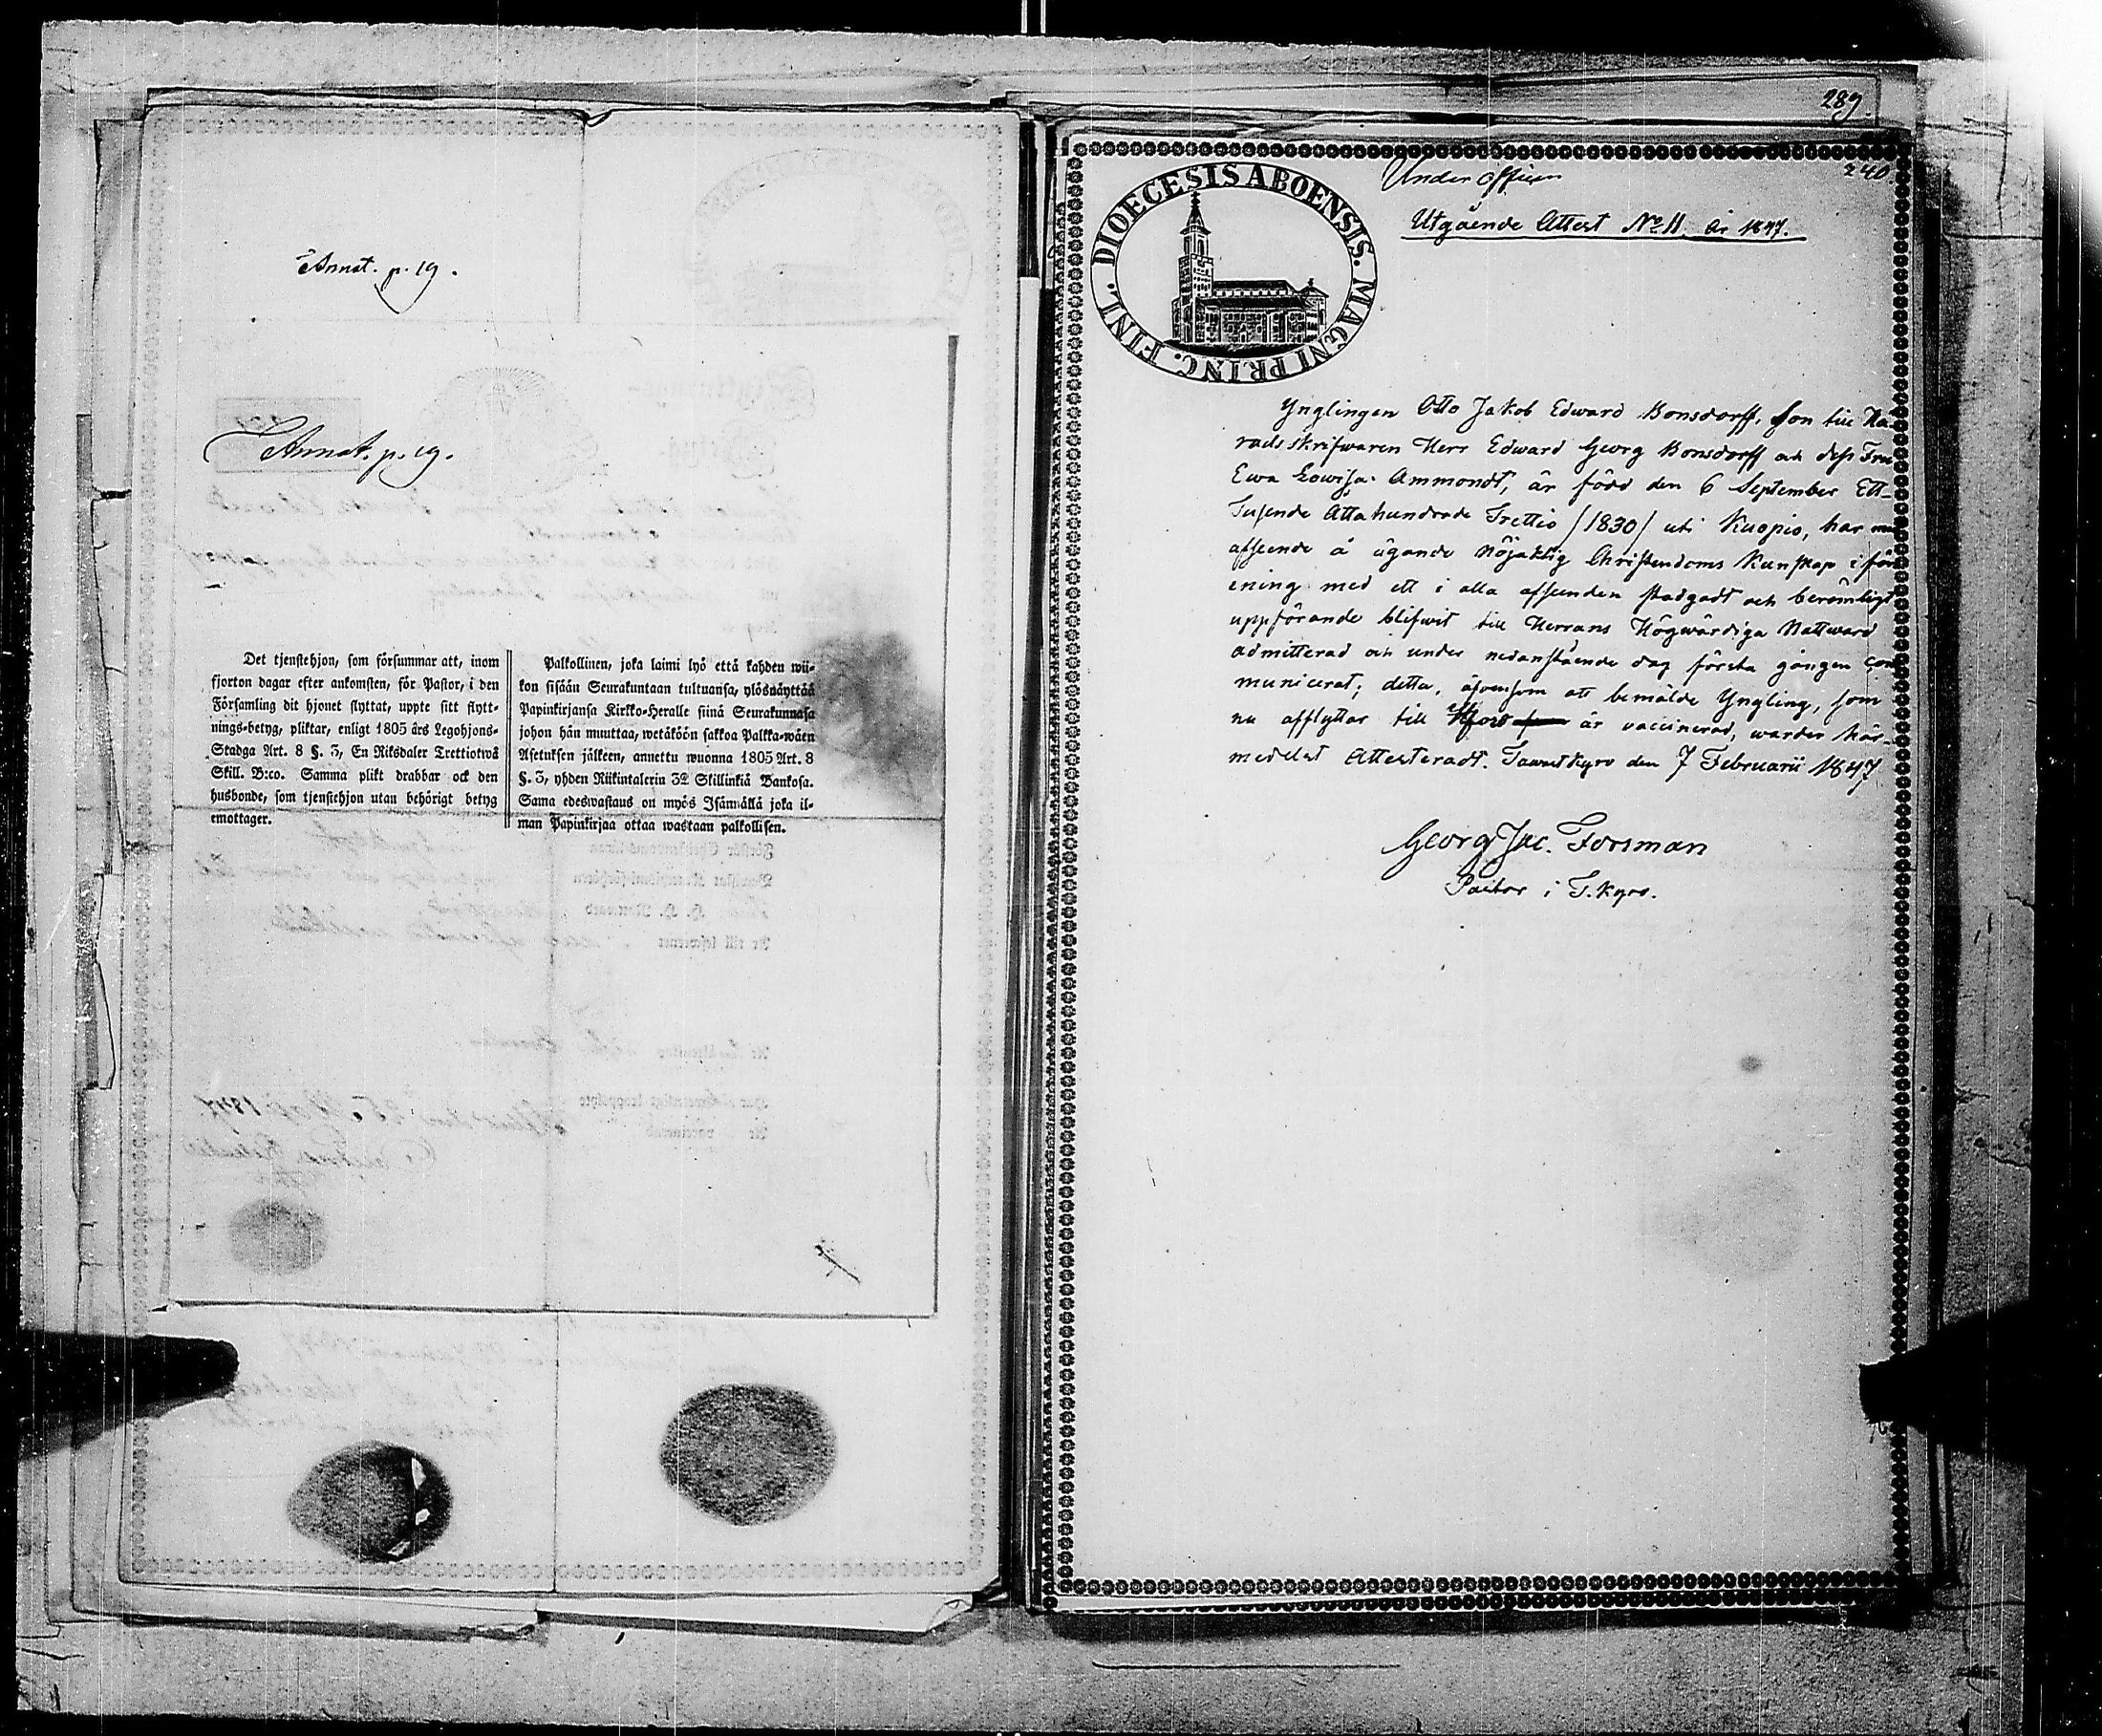 Annot. p. 19.
Annot. p. 19.
Det tjenstehjon, som försummar att, inom
fjorton dagar efter ankomsten, för Pastor, i den
Församling dit hjonet flyttat, uppte sitt flytt-
nings-betyg, pliktar, enligt 1805 års Legohjons-
Stadga Art. 8 §. 3, En Riksdaler Trettiotwå
Skill. B:co. Samma plikt drabbar ock den
husbonde, som tjenstehjon utan behörigt betyg
emottager.
Palkollinen, joka laimi lyö että kahden wii-
kon sisään Seurakuntaan tultuansa, ylösnäyttää
Papinkirjansa Kirkko-Heralle siinä Seurakunnasa
johon hän muuttaa, wetäköön sakkoa Palkka-wäen
Asetuksen jälkeen, annettu wuonna 1805 Art. 8
§. 3, yhden Riikintalerin 32 Skillinkiä Bankosa.
Sama edeswastaus on myös Isännällä joka il-
man Papinkirjaa ottaa wastaan palkollisen.
289.
240.
DIOECESIS ABOENSIS. MAGNI PRINC. FINL.
Under officer
Utgående Attest No 11. år 1847.
Ynglingen Otto Jakob Edward Bonsdorff, Son till Hä-
radsskrifwaren Herr Edward Georg Bonsdorff och dess Fru
Ewa Lowisa Ammondt, är född den 6 September Ett-
Tusende Åttahundrade Trettio /1830/ uti Kuopio, har med
afseende å ägande nöjaktig Christendoms Kunskap i för-
ening med ett i alla afseenden stadgadt och berömligt
uppförande blifwit till Herrans Högwärdiga Nattward
admitterad och under nedanstående dag första gången com-
municerat; detta, äfwensom att bemälde Yngling, som
nu afflyttar till är vaccinerad, warder här-
medelst Attesteradt. Tawastkyro den 7 Februarii 1847
Georg Jac. Forsman
Pastor i T.kyro.